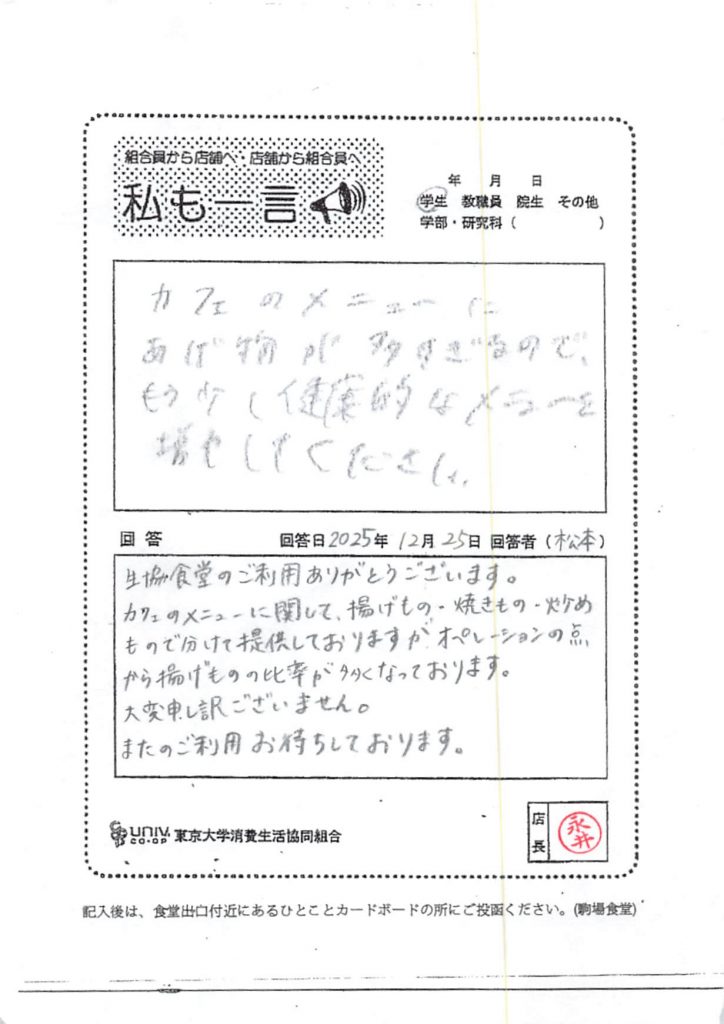 組合員から店舗へ・店舗から組合員へ
私も一言
年 月 日
学生 教職員 院生 その他
学部・研究科（ ）
カフェのメニューに
あげ物が多すぎなので、
もう少し健康的なメニューを
増やしてください。
回答 回答日2025年12月25日 回答者（松本）
生協食堂のご利用ありがとうございます。
カフェのメニューに関して、揚げもの・焼きもの・炒め
もので分けて提供しておりますがオペレーションの点
から揚げものの比率が多くなっております。
大変申し訳ございません。
またのご利用お待ちしております。
UNIV. CO-OP 東京大学消費生活協同組合
店長 永井
記入後は、食堂出口付近にあるひとことカードボードの所にご投函ください。(駒場食堂)